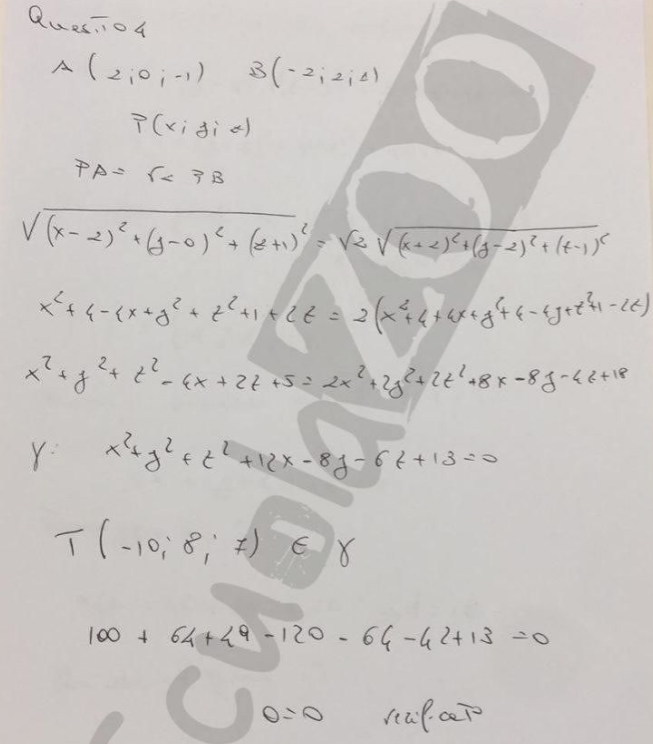 Quesito 4
A (2;0;-1) B(-2;2;1)
P(x;y;z)
PA = √2 PB
√(x-2)²+(y-0)²+(z+1)² = √2 √(x+2)²+(y-2)²+(z-1)²
x²+4-4x+y²+z²+1+2z = 2(x²+4+4x+y²+4-4y+z²+1-2z)
x²+y²+z²-4x+2z+5=2x²+2y²+2z²+8x-8y-4z+18
γ: x²+y²+z²+12x-8y-6z+13=0
T(-10;8;7) ∈ γ
100 + 64+49-120-64-42+13=0
0=0 verificato
ScuolaZOO